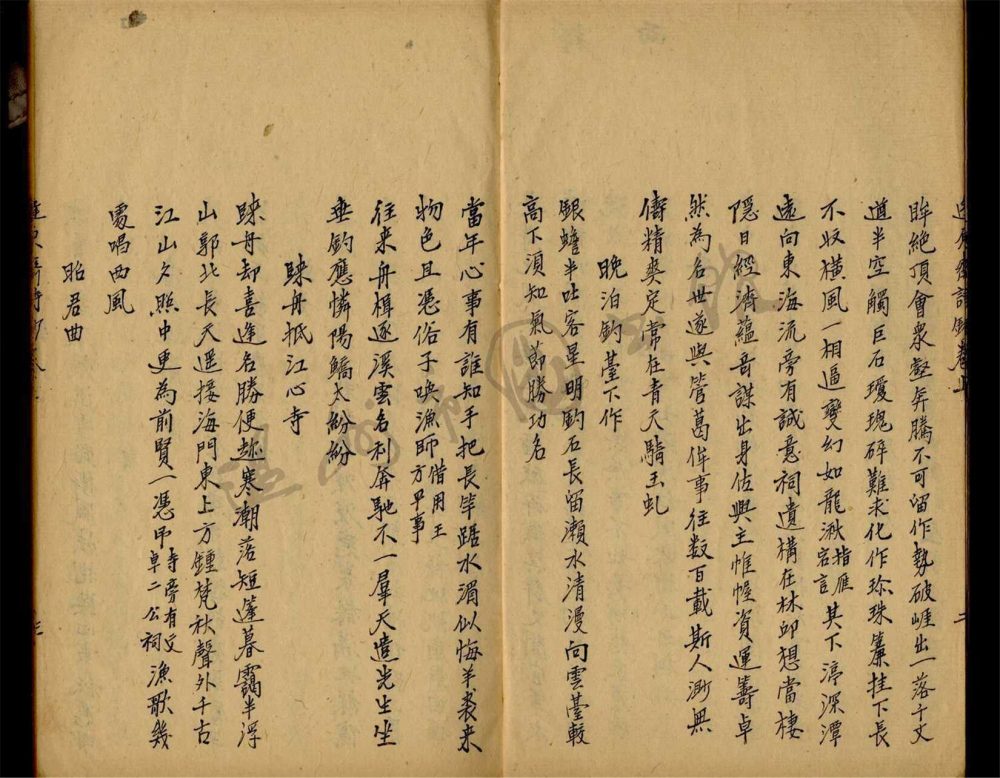 眸絕頂會衆壑奔騰不可留作勢破崖出一落千丈
道半空觸巨石瓊瑰碎難求化作珍珠簾挂下長
不收橫風一相逼變幻如龍湫指雁宕言其下渟深潭
遠向東海流旁有誠意祠遺構在林邱想當棲
隱日經濟蘊奇謀出身佐興主帷幄資運籌卓
然為名世遂與管葛侔事往数百載斯人渺無
儔精爽定常在青天騎玉虬
晚泊釣臺下作
銀蟾半吐客星明釣石長留瀨水清漫向雲臺較
高下須知氣節勝功名
當年心事有誰知手把長竿踞水湄似悔羊裘来
物色且憑俗子喚漁師借用王方平事
往来舟楫逐溪雲名利奔馳不一羣天遣先生坐
垂釣應憐陽鱎太紛紛
歸舟抵江心寺
歸舟却喜逢名勝便趁寒潮落短篷暮靄半浮
山郭北長天遥接海門東上方鍾梵秋聲外千古
江山夕照中更為前賢一憑吊寺旁有文卓二公祠漁歌幾
處唱西風
昭君曲
二
三